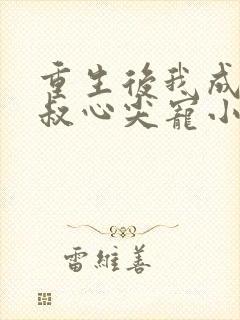 重生後我成
叔心尖寵小
雷維善